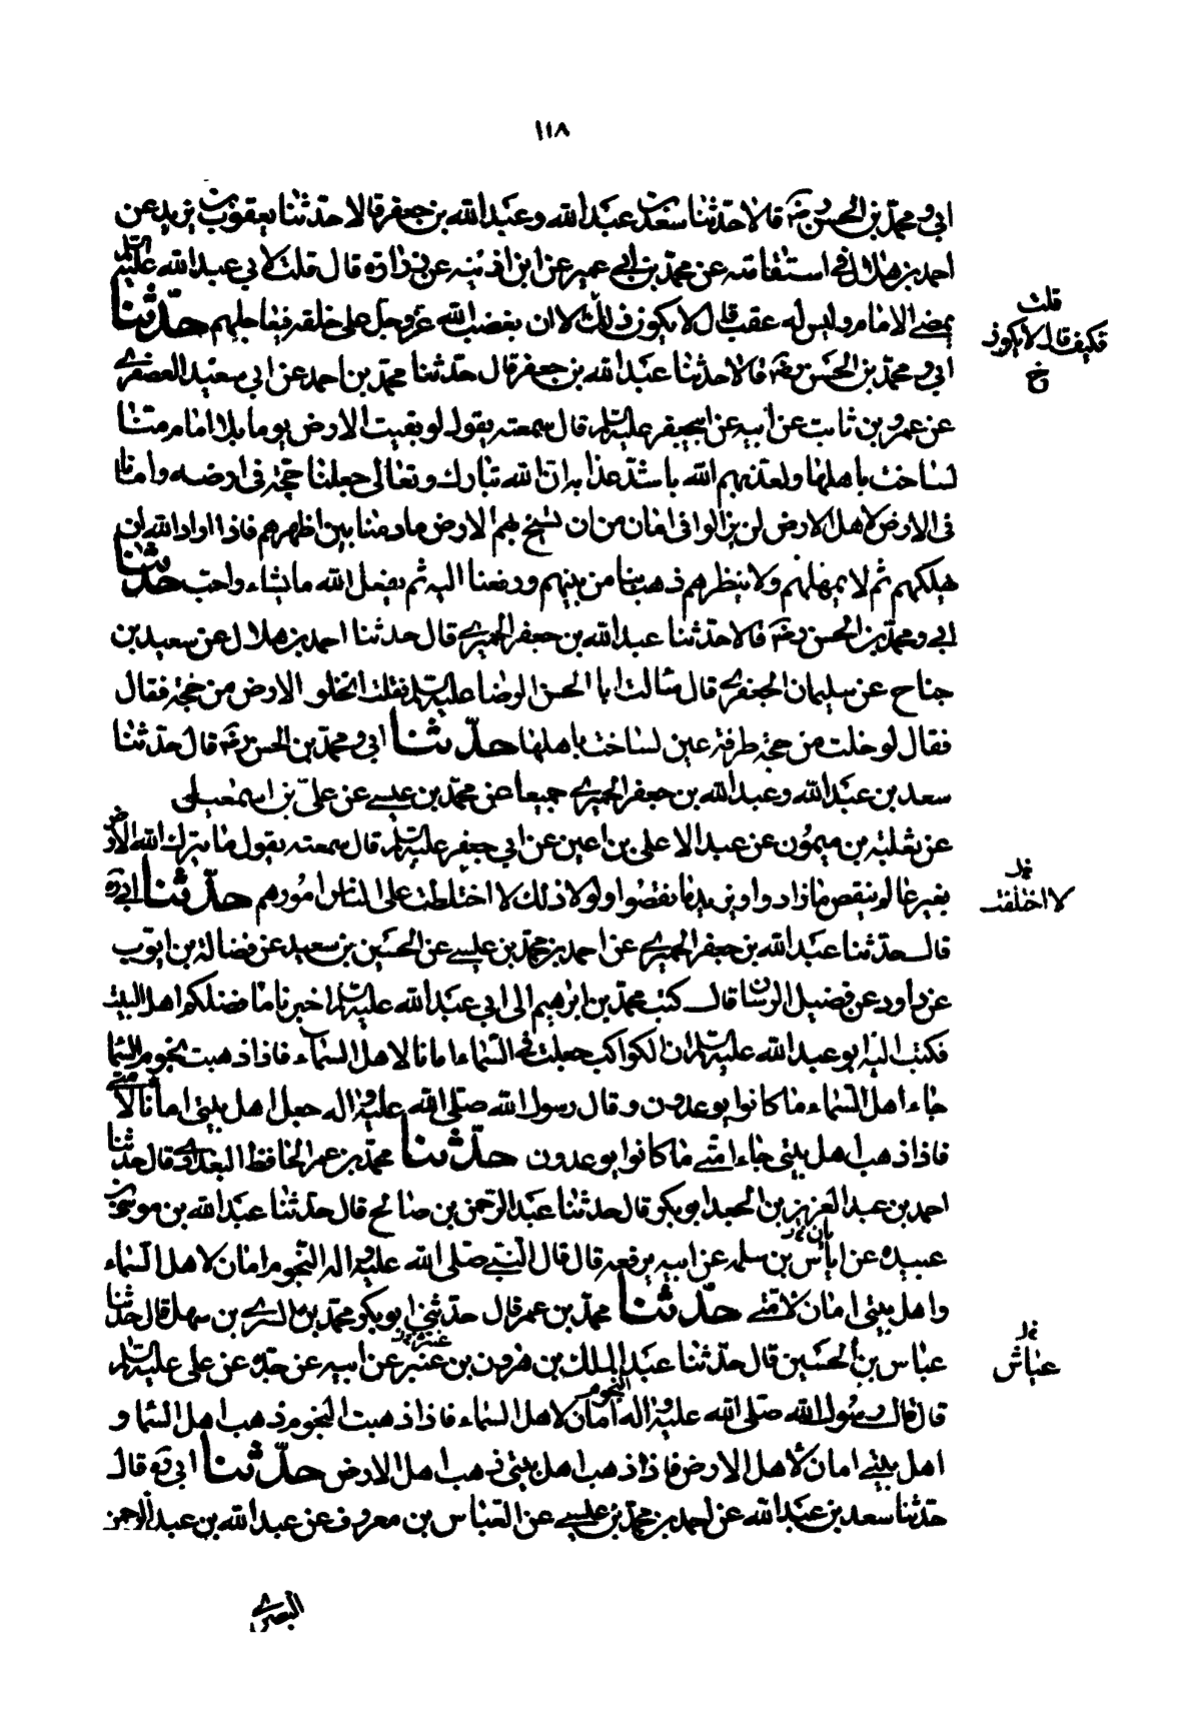 ١١٨
ابي ومحمد بن الحسن رضه قالا حدثنا سعد بن عبد الله وعبد الله بن جعفر قالا حدثنا يعقوب بن يزيد عن
احمد بن هلال في استقامته عن محمد بن ابي عمير عن ابن اذينه عن زراره قال قلت لابي عبد الله عليه السلم
يمضي الامام وليس له عقب قال لا يكون ذلك الا ان يغضب الله عز وجل على خلقه فيعاجلهم حدثنا
قلت
فكيف قال لا يكون
خ
ابي ومحمد بن الحسن رضه قالا حدثنا عبد الله بن جعفر قال حدثنا محمد بن احمد عن ابي سعيد العصفري
عن عمرو بن ثابت عن ابيه عن ابيجعفر عليه السلم قال سمعته يقول لو بقيت الارض يوما بلا امام متنا
لساخت باهلها ولعذبهم الله باشد عذابه ان الله تبارك وتعالى جعلنا حجة في ارضه وامانا
في الارض لاهل الارض لن يزالوا في امان من ان تسيخ بهم الارض ما دمنا بين اظهرهم فاذا اراد الله ان
يهلكهم ثم لا يمهلهم ولا ينظرهم ذهب بنا من بينهم ورفعنا اليه ثم يفعل الله ما يشاء واحب حدثنا
ابي ومحمد بن الحسن رضه قالا حدثنا عبد الله بن جعفر الحميري قال حدثنا احمد بن هلال عن سعيد بن
جناح عن سليمان الجعفري قال سالت ابا الحسن الرضا عليه السلم فقلت اتخلو الارض من حجة فقال
فقال لو خلت من حجة طرفة عين لساخت باهلها حدثنا ابي ومحمد بن الحسن رضه قال حدثنا
سعد بن عبد الله وعبد الله بن جعفر الحميري جميعا عن محمد بن عيسى عن علي بن اسمعيل
عن ثعلبة بن ميمون عن عبد الاعلى بن اعين عن ابي جعفر عليه السلم قال سمعته يقول ما ترك الله الارض
بغير عالم ينقص ما زادوا ويزيد ما نقصوا ولولا ذلك لا اختلطت على الناس امورهم حدثنا ابي ره
خ ل
لا اختلفت
قال حدثنا عبد الله بن جعفر الحميري عن احمد بن محمد بن عيسى عن الحسين بن سعيد عن فضالة بن ايوب
عن داود عن فضيل الرسان قال كتب محمد بن ابرهيم الى ابي عبد الله عليه السلم اخبرنا ما فضلكم اهل البيت
فكتب اليه ابو عبد الله عليه السلم ان الكواكب جعلت في السماء امانا لاهل السماء فاذا ذهبت نجوم السماء
جاء اهل السماء ما كانوا يوعدون وقال رسول الله صلى الله عليه واله جعل اهل بيتي امانا لامتي
فاذا ذهب اهل بيتي جاء امتي ما كانوا يوعدون حدثنا محمد بن عمر الحافظ البغدادي قال حدثنا
احمد بن عبد العزيز بن الجعد ابو بكر قال حدثنا عبد الرحمن بن صالح قال حدثنا عبد الله بن موسى بن
عبيده عن اياس بن سلمه عن ابيه يرفعه قال قال النبي صلى الله عليه واله النجوم امان لاهل السماء
واهل بيتي امان لامتي حدثنا محمد بن عمر قال حدثني ابو بكر محمد بن السري بن سهل قال حدثنا
عباس بن الحسين قال حدثنا عبد الملك بن هرون بن عنبر عن ابيه عن جده عن علي عليه السلم
خ ل
عباش
قال قال رسول الله صلى الله عليه واله النجوم امان لاهل السماء فاذا ذهبت النجوم ذهب اهل السماء و
اهل بيتي امان لاهل الارض فاذا ذهب اهل بيتي ذهب اهل الارض حدثنا ابي ره قال
حدثنا سعد بن عبد الله عن احمد بن محمد بن عيسى عن العباس بن معروف عن عبد الله بن عبد الرحمن
البصري